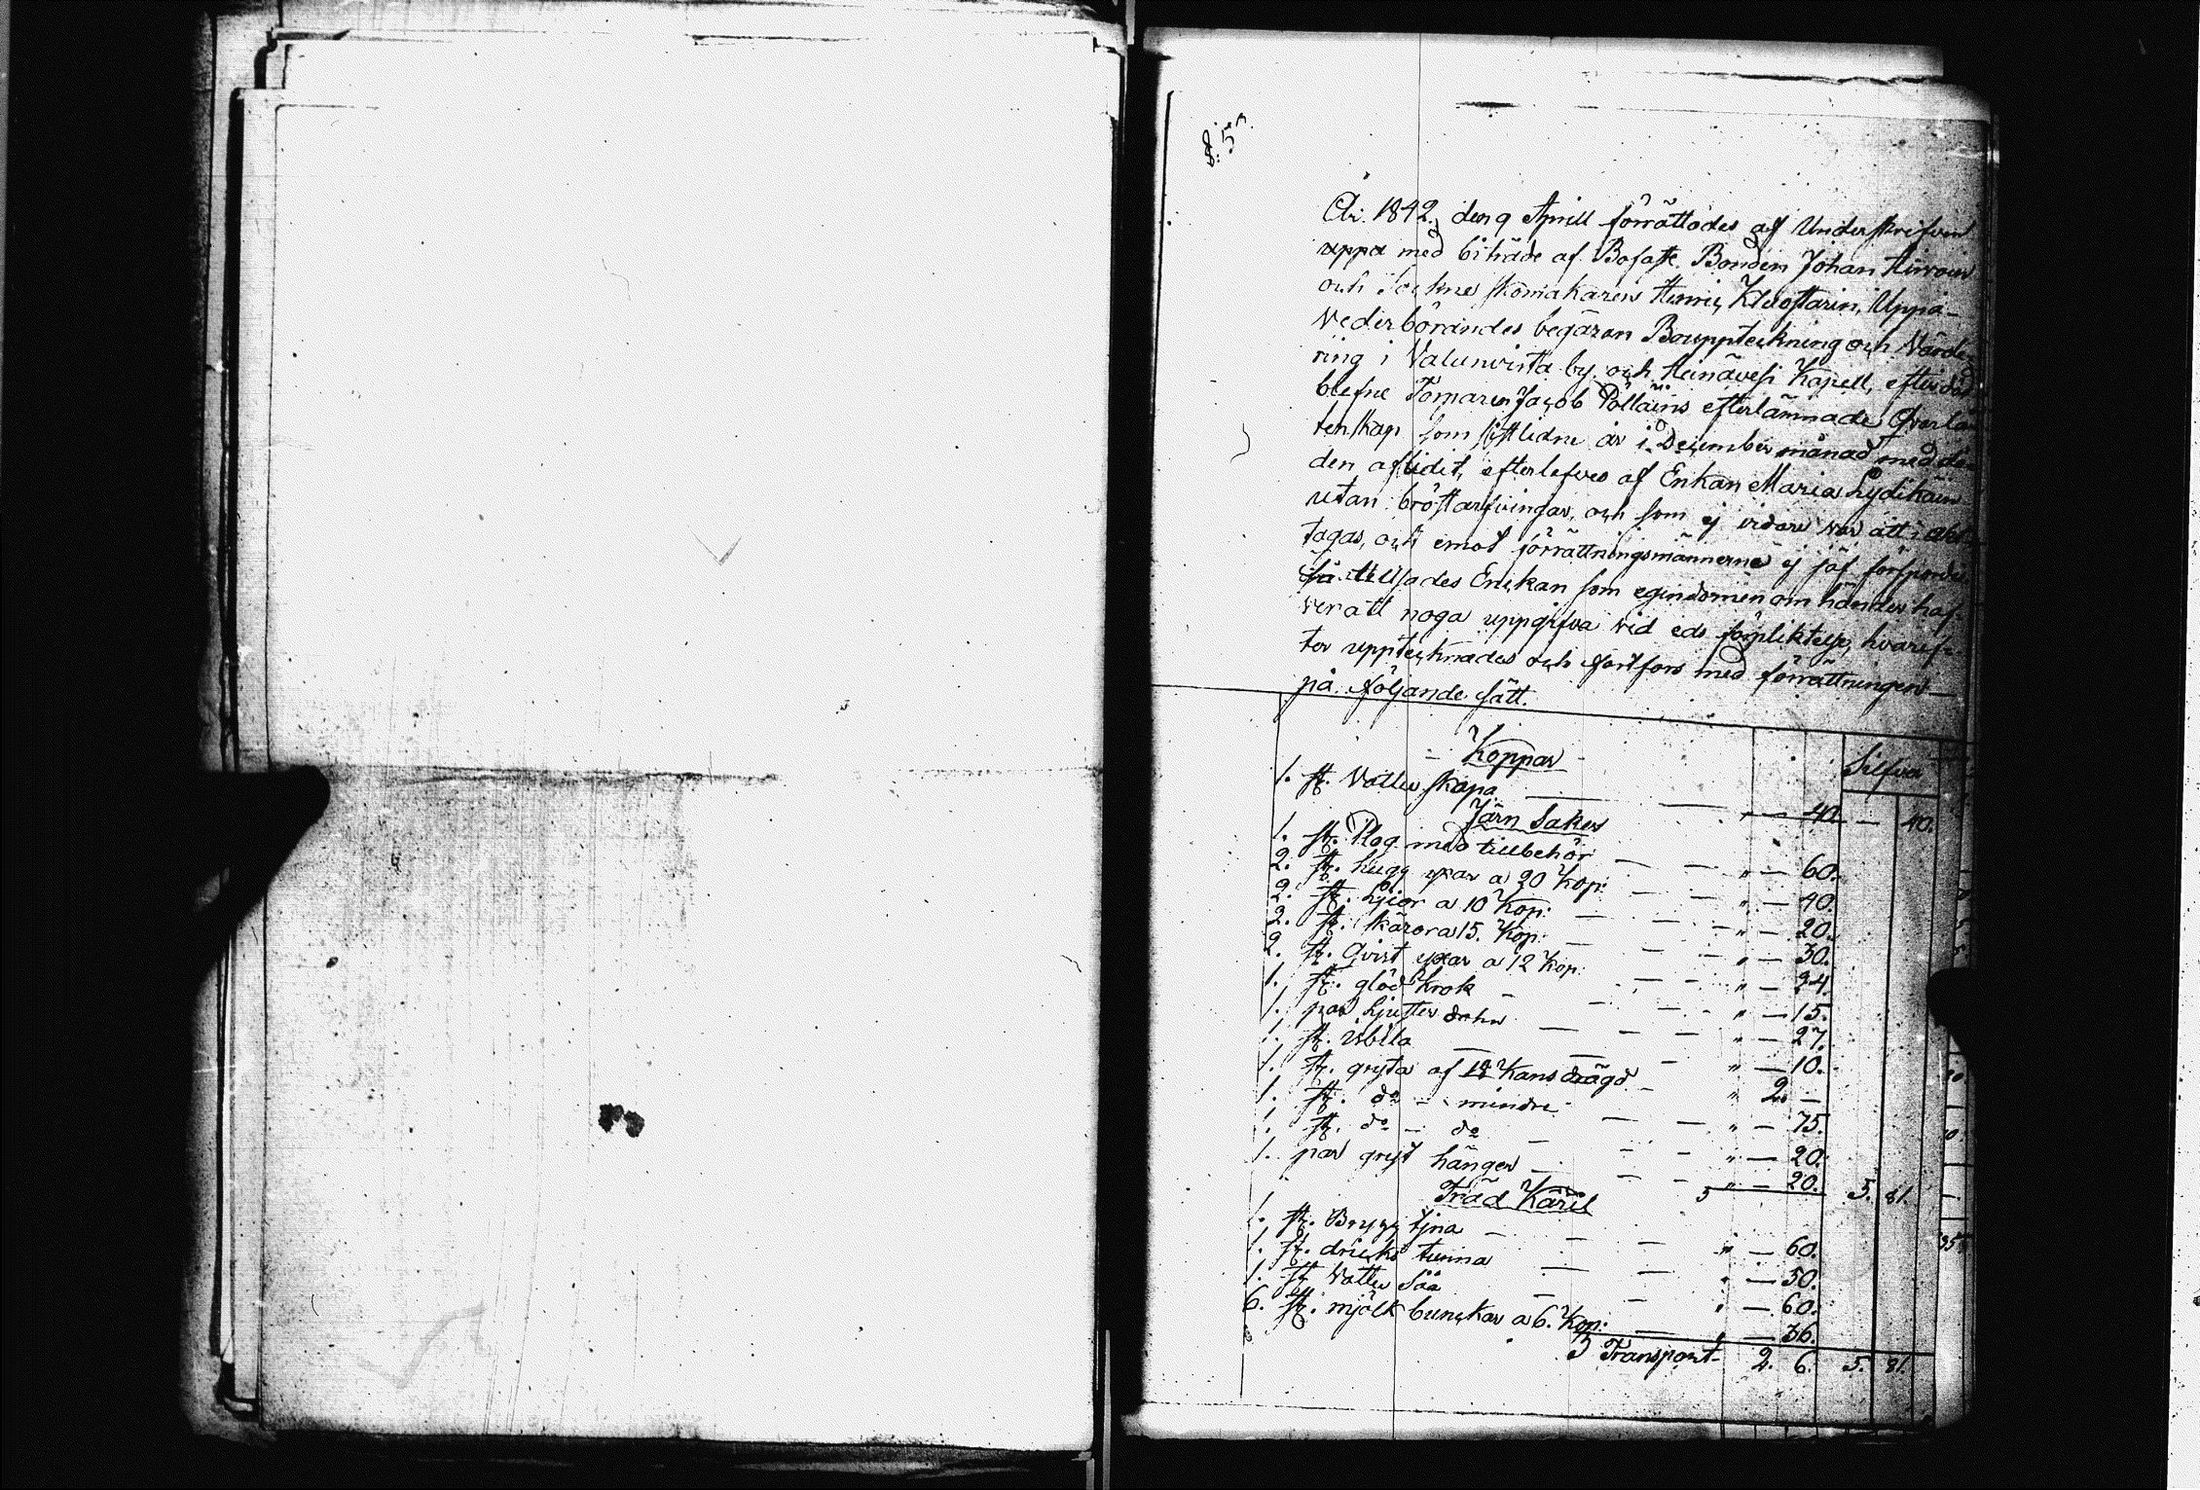 År 1842 den 9 Aprill förrättades af Underskrifven
uppå med biträde af Bofaste Bonden Johan
och Sockne skomakaren Henric Uppå
Vederbörandes begäran Bouppteckning och Värde-
ring i Valunvista by och Heinävesi Kapell, efter död
blefne Torparen Jacob Pölläins efterlämnade Qvarlå
tenskap som sistlidne år i December månad med dö
den aflidit, efterlefves af Enkan Maria Lydikäin
utan bröstarfvingar, och som ej vidare var att i akt
tagas, och emot förrättningsmännerne ej jäf förspordes
så tillsades Enckan som egendomen om händer haf
ver att noga uppgifva vid eds förpliktelse, hvaref-
ter upptecknades och fortfors med förrättningen
på följande sätt.
Silfver
Koppar
1. st. Vatten skapa — — " — 40. — 40.
Järn Saker
1. st. Plog med tillbehör — — " — 60.
2. st. hugg yxar a 20 Kop: — — " — 40.
2. st. Liior a 10 Kop: — — " — 20.
2. st. skäror a 15. Kop: — — " — 30.
2. st. Qvist yxar a 12 Kop: — — " — 24.
1. st. glöd krok — — " — 15.
1. par Ljuster — — " — 27.
1. st. isbila — — " — 10.
1. st. gryta af 12 Kans drägd — " 2. —
1. st. do — mindre — — " — 75.
1. st. do — do — — " — 20.
1. par gryt hänger — — " — 20. 5. 81.
Träd Käril
1. st. Brygg tjna — — " — 60.
1. st. dricks tunna — — " — 50.
1. st. Vatten Såå — — " — 60.
6. st. mjölk bunckar a 6. Kop: — " — 36.
Transport 2. 6. 5. 81.